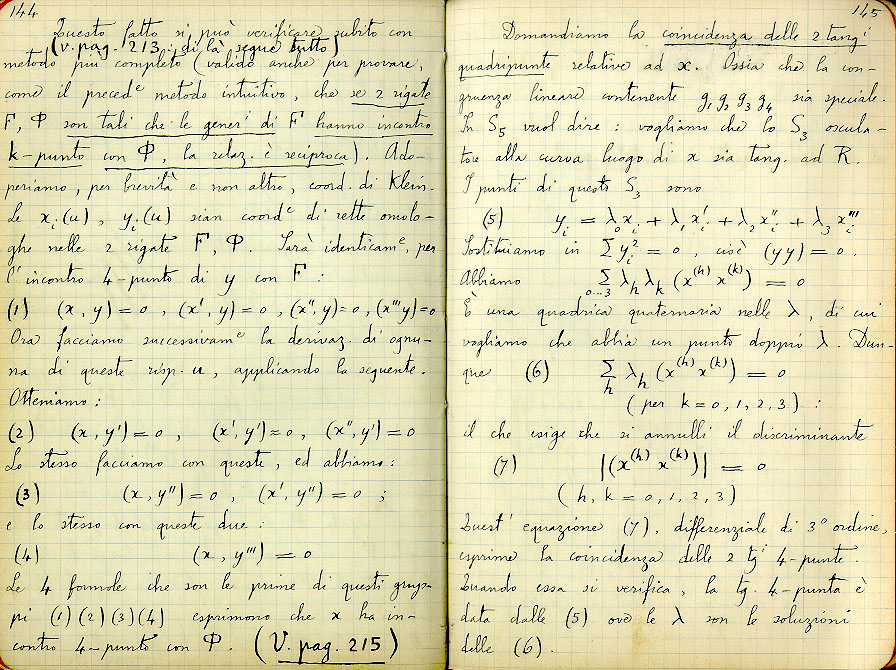 144
Questo fatto si può verificare subito con
(v. pag. 213 : di là segue tutto)
metodo più completo (valido anche per provare,
come il preced^e metodo intuitivo, che se 2 rigate
F, Φ son tali che le gener^i di F hanno incontro
k-punto con Φ, la relaz. è reciproca). Ado-
periamo, per brevità e non altro, coord. di Klein.
Le x_i(u), y_i(u) sian coord^e di rette omolo-
ghe nelle 2 rigate F, Φ. Sarà identicam^e, per
l'incontro 4-punto di y con F :
(1) (x, y) = 0 , (x', y) = 0 , (x'', y) = 0 , (x''' y) = 0
Ora facciamo successivam^e la derivaz. di ognu-
na di queste risp. u, applicando la seguente.
Otteniamo :
(2) (x, y') = 0 , (x', y') = 0 , (x'', y') = 0
Lo stesso facciamo con queste, ed abbiamo :
(3) (x, y'') = 0 , (x', y'') = 0 ;
e lo stesso con queste due :
(4) (x, y''') = 0
Le 4 formole che son le prime di questi grup-
pi (1)(2)(3)(4) esprimono che x ha in-
contro 4-punto con Φ. (V. pag. 215)
145
Domandiamo la coincidenza delle 2 tang^i
quadripunte relative ad x. Ossia che la con-
gruenza lineare contenente g_1 g_2 g_3 g_4 sia speciale.
In S_5 vuol dire : vogliamo che lo S_3 oscula-
tore alla curva luogo di x sia tang. ad R.
I punti di questo S_3 sono
(5) y_i = λ_0 x_i + λ_1 x'_i + λ_2 x''_i + λ_3 x'''_i
Sostituiamo in Σ y_i^2 = 0 , cioè (yy) = 0 .
Abbiamo Σ_{0...3} λ_h λ_k (x^(h) x^(k)) = 0
È una quadrica quaternaria nelle λ, di cui
vogliamo che abbia un punto doppio λ. Dun-
que (6) Σ_h λ_h (x^(h) x^(k)) = 0
(per k = 0, 1, 2, 3) :
il che esige che si annulli il discriminante
(7) |(x^(h) x^(k))| = 0
(h, k = 0, 1, 2, 3)
Quest' equazione (7), differenziale di 3° ordine,
esprime la coincidenza delle 2 tg^i 4-punte.
Quando essa si verifica, la tg. 4-punta è
data dalle (5) ove le λ son le soluzioni
delle (6).